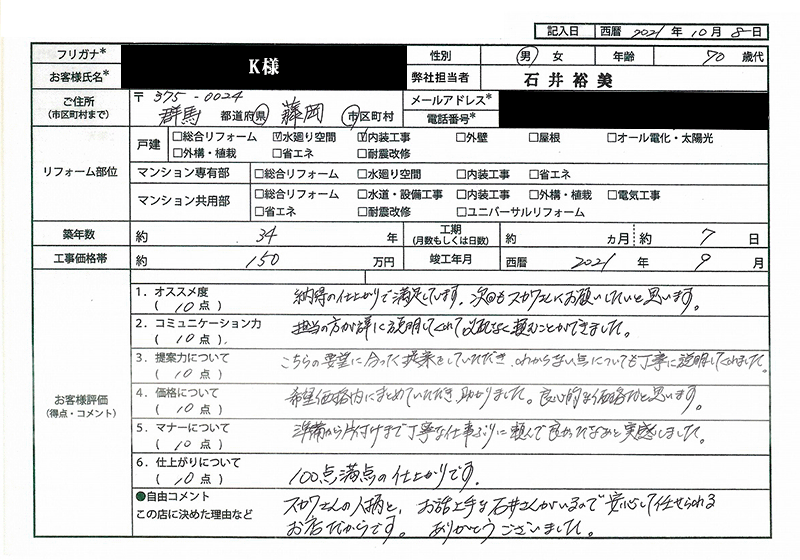 記入日 西暦 2021 年 10 月 8 日
フリガナ* K様 性別 男 女 年齢 70 歳代
お客様氏名* 弊社担当者 石井裕美
ご住所 〒 375-0024 メールアドレス*
(市区町村まで) 群馬 都道府県 藤岡 市区町村 電話番号*
リフォーム部位
戸建 □総合リフォーム ☑水廻り空間 ☑内装工事 □外壁 □屋根 □オール電化・太陽光
□外構・植栽 □省エネ □耐震改修
マンション専有部 □総合リフォーム □水廻り空間 □内装工事 □省エネ
マンション共用部 □総合リフォーム □水道・設備工事 □内装工事 □外構・植栽 □電気工事
□省エネ □耐震改修 □ユニバーサルリフォーム
築年数 約 34 年 工期 (月数もしくは日数) 約 ヵ月 約 7 日
工事価格帯 約 150 万円 竣工年月 西暦 2021 年 9 月
お客様評価
(得点・コメント)
1．オススメ度
( 10 点 ) 納得の仕上がりで満足しています。次回もスガワさんにお願いしたいと思います。
2．コミュニケーション力
( 10 点 ) 担当の方が詳に説明してくれて なく頼むことができました。
3．提案力について
( 10 点 ) こちらの要望に合った提案をしていただき、わからない点についても丁寧に説明してくれました。
4．価格について
( 10 点 ) 希望価格内にまとめていただき、助かりました。良心的な価格だと思います。
5．マナーについて
( 10 点 ) 準備から片付けまで丁寧な仕事ぶりに頼んで良かったなあと実感しました。
6．仕上がりについて
( 10 点 ) 100点満点の仕上がりです。
●自由コメント
この店に決めた理由など
スガワさんの人柄と、お話上手な石井さんがいるので安心して任せられる
お店だからです。ありがとうございました。